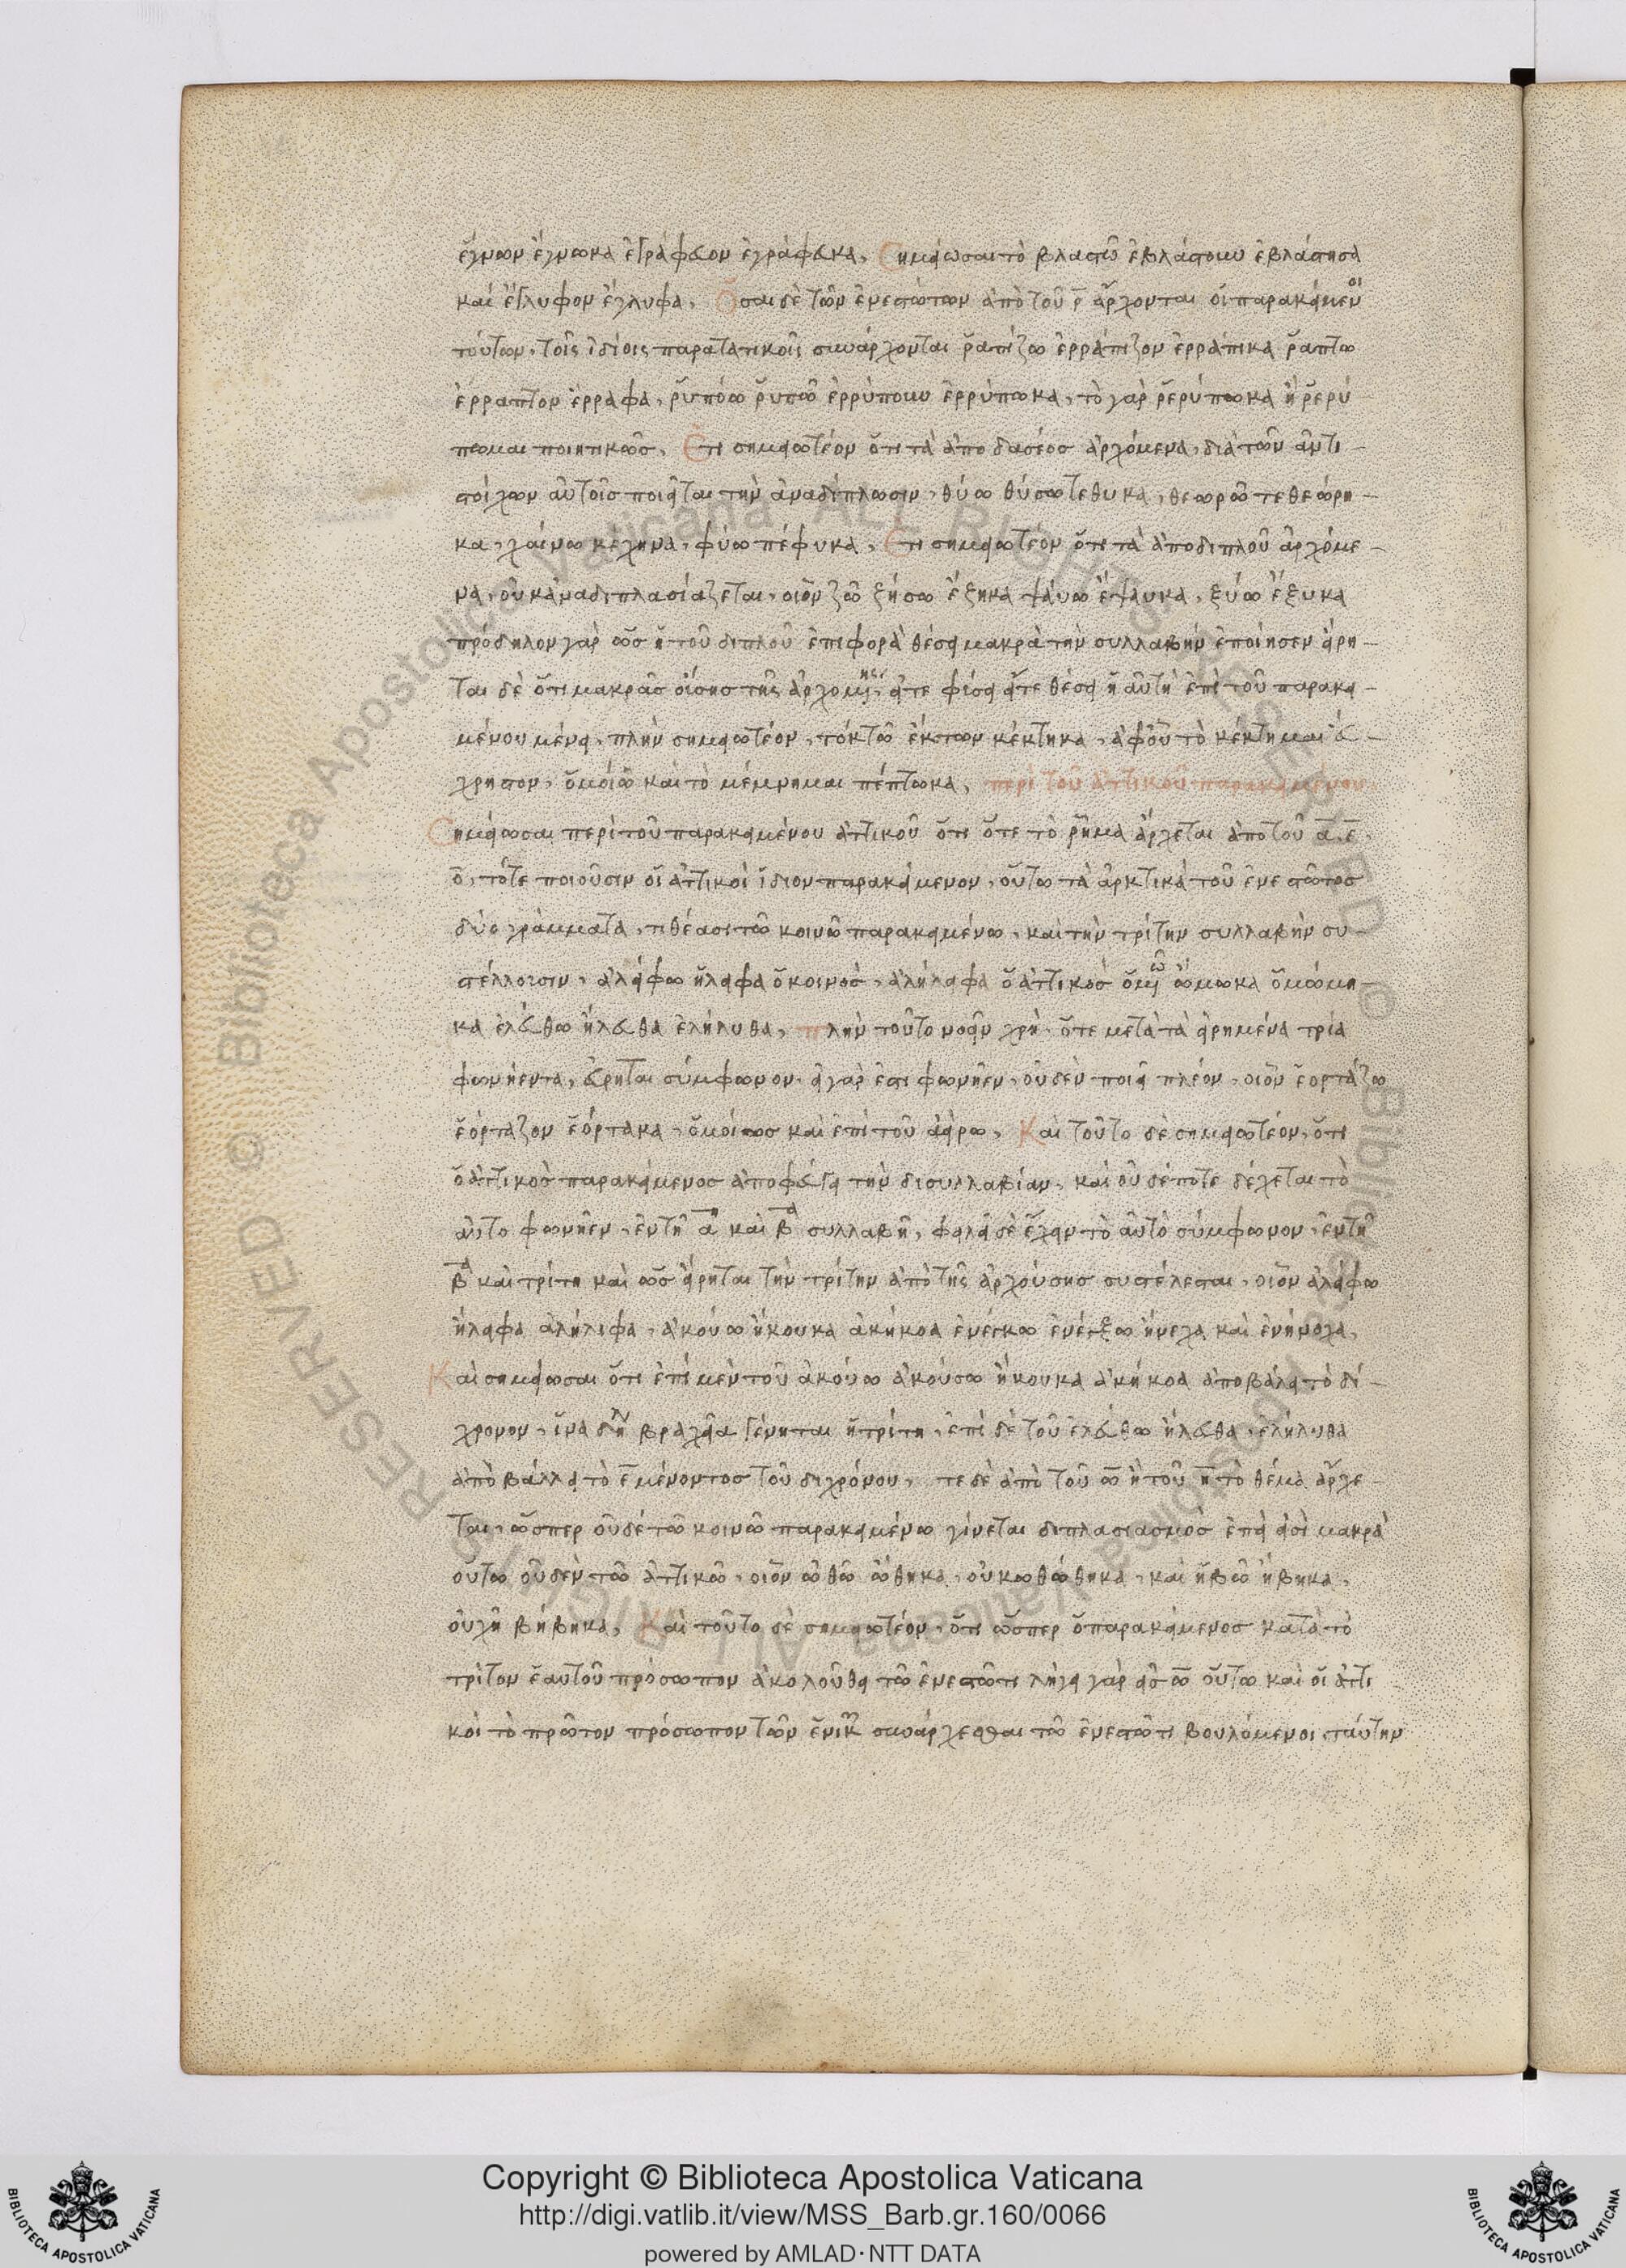 ἔγνων ἔγνωκα ἐγράφευον ἐγράφευκα, Σημείωσαι τὸ βλαστῶ ἐβλάστουν ἐβλάστησα
καὶ ἔγλυφον ἔγλυφα, Ὅσαι δὲ τῶν ἐνεστώτων ἀπὸ τοῦ ρ ἄρχονται οἱ παρακείμενοι
τούτων, τοῖς ἰδίοις παρατατικοῖς συνάρχονται ῥαπίζω ἐρράπιζον ἐρράπικα ῥάπτω
ἔρραπτον ἔρραφα, ῥυπόω ῥυπῶ ἐρρύπουν ἐρρύπωκα, τὸ γὰρ ῥερύπωκα ἢ ῥερύ
πωμαι ποιητικῶς. Ἔτι σημειωτέον ὅτι τὰ ἀπο δασέος ἀρχόμενα, διὰ τῶν ἀντι-
στοίχων αὐτοῖς ποιεῖται τὴν ἀναδίπλωσιν, θύω θύσω τέθυκα, θεωρῶ τεθεώρη-
κα, χαίνω κέχηνα, φύω πέφυκα, Ἔτι σημειωτέον ὅτι τὰ ἀπο διπλοῦ ἀρχόμε-
να, οὐκ ἀναδιπλασιάζεται, οἷον ζῶ ζήσω ἔζηκα ψαύω ἔψαυκα, ξύω ἔξυκα
πρόδηλον γὰρ ὡς ἡ τοῦ διπλοῦ ἐπιφορὰ θέσει μακρὰ τὴν συλλαβὴν ἐποίησεν εἴρη-
ται δὲ ὅτι μακρᾶς οὔσης τῆς ἀρχομένης, εἴτε φύσει εἴτε θέσει ἡ αὐτὴ ἐπὶ τοῦ παρακει-
μένου μένει, πλὴν σημειωτέον, τὸ κτῶ ἔκτων κέκτηκα, ἀφ' οὗ τὸ κέκτημαι εὔ-
χρηστον, ὁμοίως καὶ τὸ μέμνημαι πέπτωκα, περὶ τοῦ ἀττικοῦ παρακειμένου
Σημείωσαι περὶ τοῦ παρακειμένου ἀττικοῦ ὅτι ὅτε τὸ ῥῆμα ἄρχεται ἀπο τοῦ α. ε.
ο, τότε ποιοῦσιν οἱ ἀττικοὶ ἴδιον παρακείμενον, οὕτω τὰ ἀρκτικὰ τοῦ ἐνεστῶτος
δύο γράμματα, τιθέασι τῶ κοινῶ παρακειμένω, καὶ τὴν τρίτην συλλαβὴν συ-
στέλλουσιν, ἀλείφω ἤλειφα ὁ κοινὸς, ἀλήλειφα ὁ ἀττικὸς ὀμῶ ὤμωκα ὀμώμη-
κα ἐλεύθω ἤλευθα ἐλήλυθα, πλὴν τοῦτο νοεῖν χρὴ, ὅτε μετὰ τὰ εἰρημένα τρία
φωνήεντα, εὕρηται σύμφωνον, εἰ γάρ ἐστι φωνῆεν, οὐδὲν ποιεῖ πλέον, οἷον ἑορτάζω
ἑόρταζον ἑόρτακα, ὁμοίως καὶ ἐπὶ τοῦ ἀείρω, Καὶ τοῦτο δὲ σημειωτέον, ὅτι
ὁ ἀττικὸς παρακείμενος ἀποφεύγει τὴν δισυλλαβίαν, καὶ οὐδέποτε δέχεται τὸ
αὐτο φωνῆεν, ἐν τῆ αη καὶ βα συλλαβῆ, φιλεῖ δὲ ἔχειν τὸ αὐτὸ σύμφωνον, ἐν τῆ
βα καὶ τρίτη καὶ ὡς εἴρηται τὴν τρίτην ἀπὸ τῆς ἀρχούσης συστέλεσαι, οἷον ἀλείφω
ἤλειφα ἀλήλιφα, ἀκούω ἤκουκα ἀκήκοα ἐνέκω ἐνέξω ἤνεχα καὶ ἐνήνοχα,
Καὶ σημείωσαι ὅτι ἐπὶ μὲν τοῦ ἀκούω ἀκούσω ἤκουκα ἀκήκοα ἀποβάλει τὸ δί-
χρονον, ἵνα δὴ βραχεῖα γένηται ἡ τρίτη, ἐπὶ δὲ τοῦ ἐλεύθω ἤλευθα, ἐλήλυθα
ἀπὸ βάλλει τὸ ε μένοντος τοῦ διχρόνου, τε δὲ ἀπὸ τοῦ ω ἢ τοῦ η τὸ θέμα ἄρχε-
ται, ὥσπερ οὐδὲ τῶ κοινῶ παρακειμένω γίνεται διπλασιασμὸς ἐπεὶ εἰσὶ μακρὰ
οὕτω οὐδὲν τῶ ἀττικῶ, οἷον ὠθῶ ὤθηκα, οὐκ ὠθώθηκα, καὶ ἡβῶ ἥβηκα,
οὐχὴ βήβηκα, Καὶ τοῦτο δὲ σημειωτέον, ὅτι ὥσπερ ὁ παρακείμενος κατὰ τὸ
τρίτον ἑαυτοῦ πρόσωπον ἀκολουθεῖ τῶ ἐνεστῶτι λήγει γὰρ εἰς ω οὕτω καὶ οἱ ἀττι
κοὶ τὸ πρῶτον πρόσωπον τῶν ἑνικῶν συνάρχεσθαι τῶ ἐνεστῶτι βουλόμενοι, ταύτην
Copyright © Biblioteca Apostolica Vaticana
http://digi.vatlib.it/view/MSS_Barb.gr.160/0066
powered by AMLAD·NTT DATA